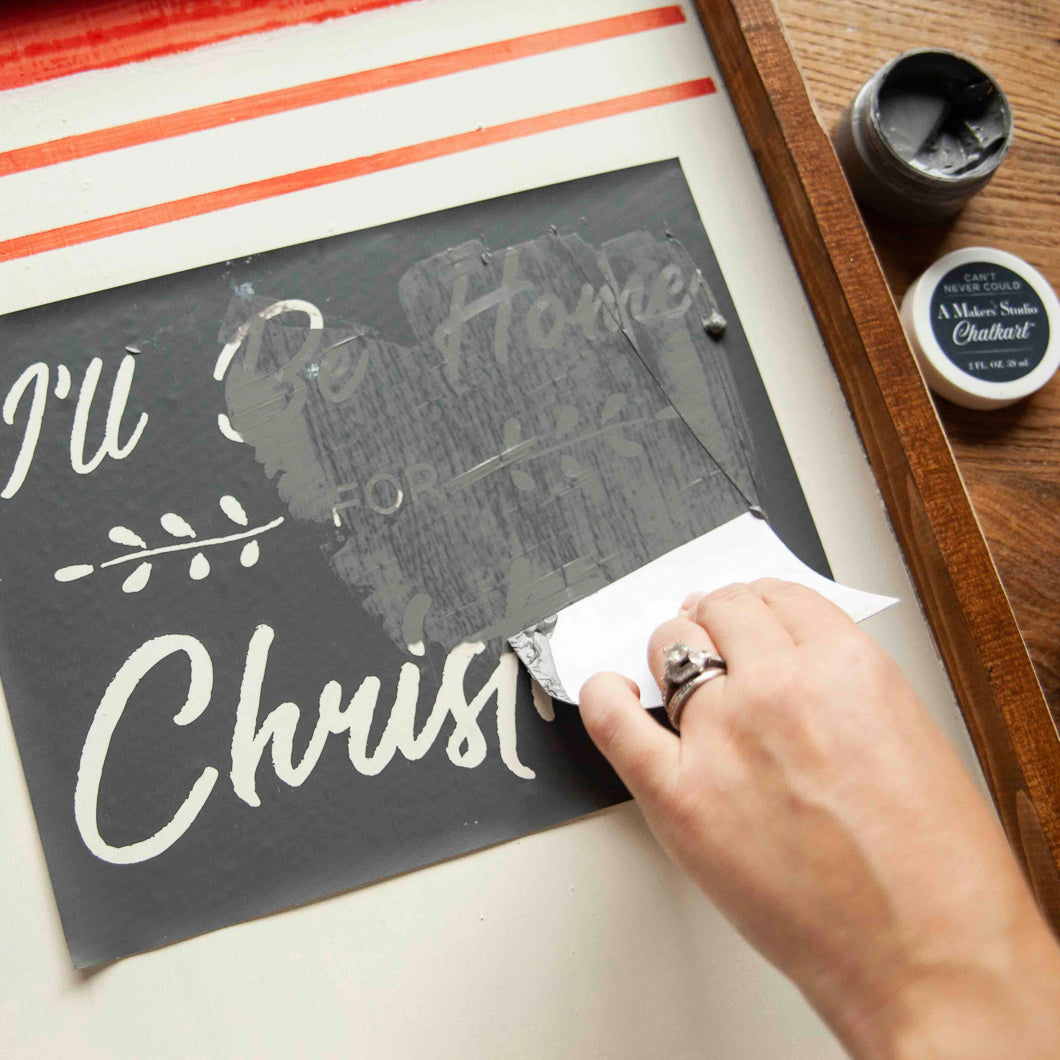 I'll Be Home
FOR
Christ
CAN'T
NEVER COULD
A Makers' Studio
Chalkart™
2 FL. OZ. 59 ml